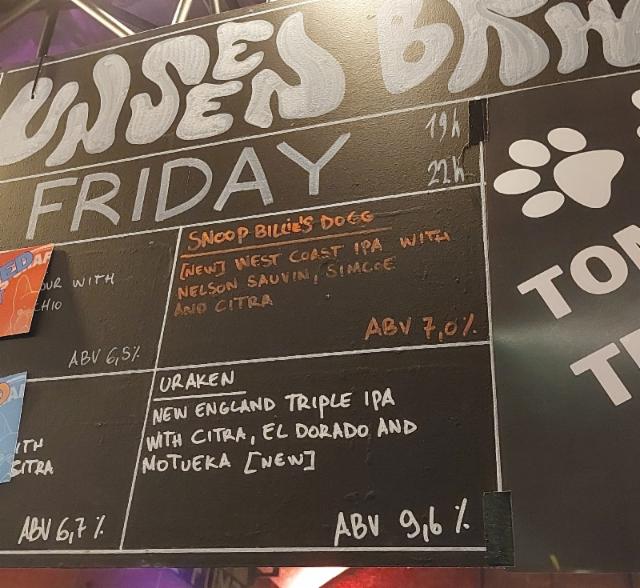 UNSEEN
FRIDAY
19h
22h
SNOOP BILLIE'S DOGG
[NEW] WEST COAST IPA WITH
NELSON SAUVIN, SIMCOE
AND CITRA
ABV 7,0%
ABV 6,5%
URAKEN
NEW ENGLAND TRIPLE IPA
WITH CITRA, EL DORADO AND
MOTUEKA [NEW]
ABV 9,6%
ABV 6,7%